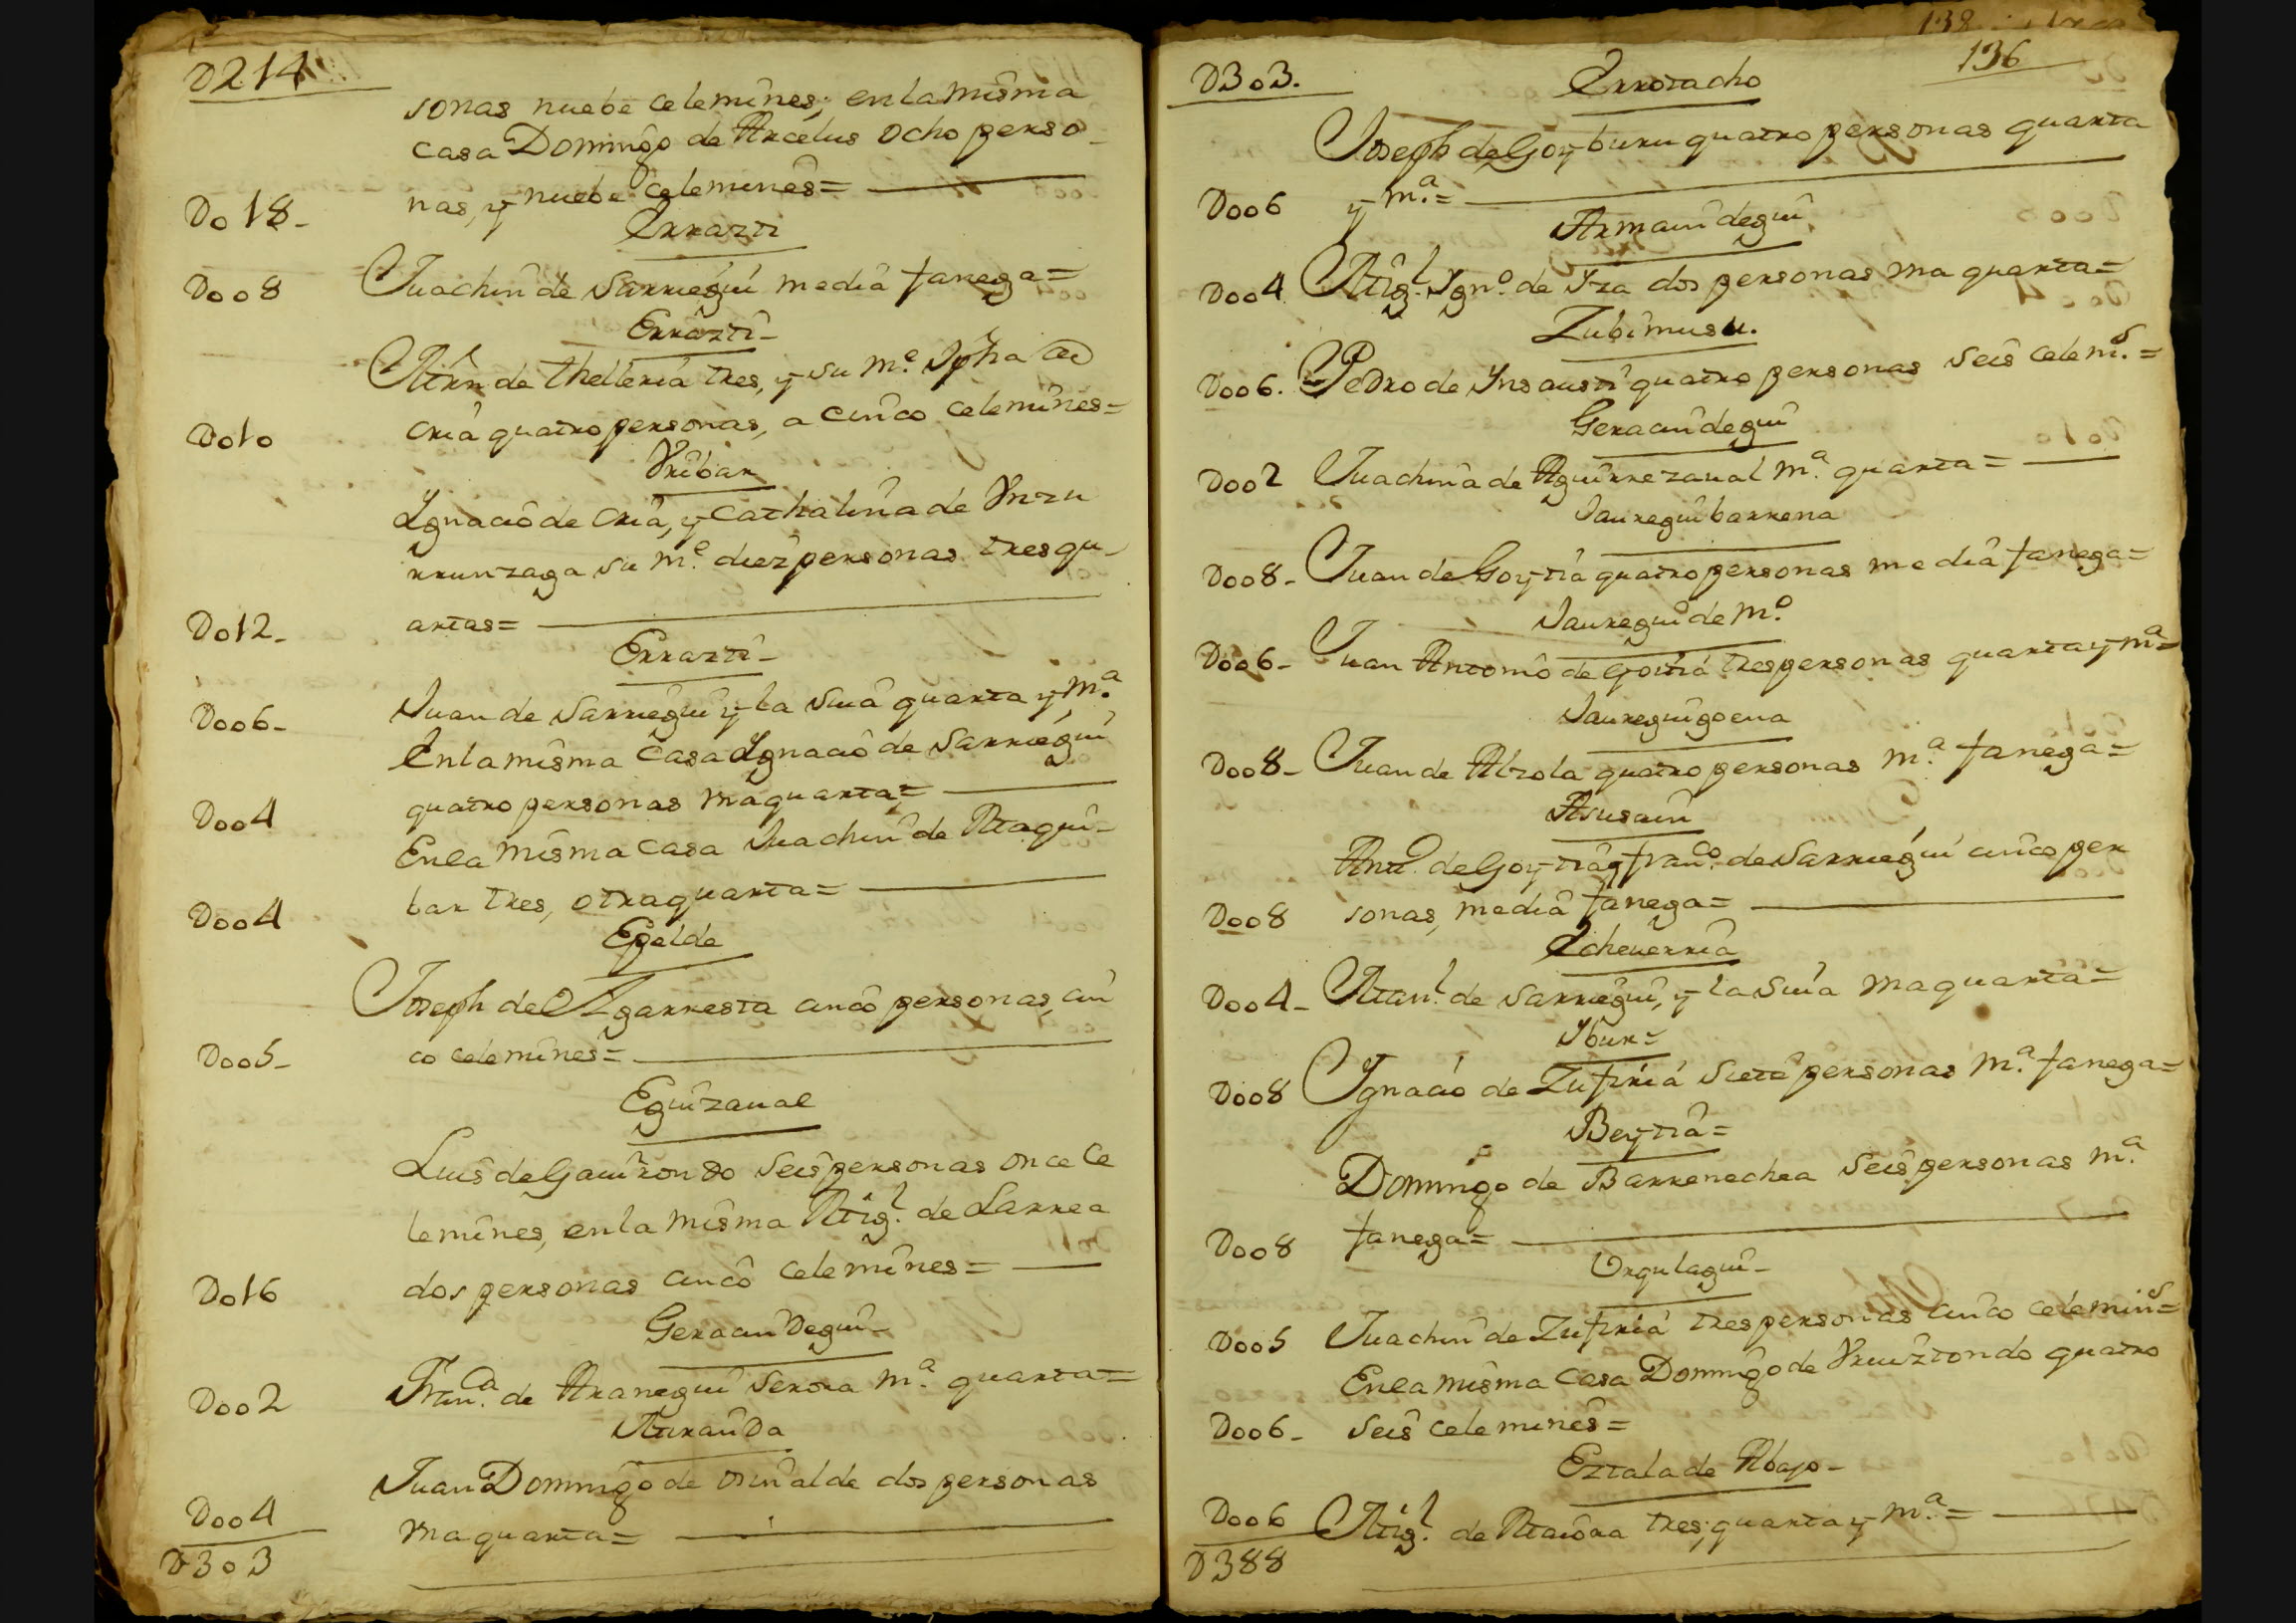 D214
sonas nuebe celemines; en la misma
casa Domingo de Arcelus ocho perso-
D018- nas, y nuebe celemines=
Errazti
D008 Juachin de Sarriegui media fanega=
Errazti-
Mrn de Thelleria tres, y su m.e Jpha de
D010 Oria quatro personas, a cinco celemines=
Vribar
Ygnacio de Oria, y Cathalina de Vnzu
rrunzaga su m.e diez personas tres qu-
D012- artas=
Errazti-
D006- Juan de Sarriegui y la Suia quarta y m.a
En la misma Casa Ygnacio de Sarriegui
D004 quatro personas vna quarta=
En la misma casa Juachin de Maqui-
D004 bar tres, otra quarta=
Egelde
Joseph de Yzgarresta cinco personas, cin
D005- co celemines=
Eguizaual
Luis de Gauirondo Seis personas once ce
lemines, en la misma Mig.l de Larrea
D016 dos personas cinco celemines=
GeraciniDegui-
D002 Fran.ca de Aranegui Serora m.a quarta=
MiranDa
Juan Domingo de osinalde dos personas
D004 vna quarta=
D303
138
136
D303. Errotacho
Joseph de Goyburu quatro personas quarta
D006 y m.a=
Armaindegui
D004. Mig.l Ygn.o de Yza dos personas vna quarta=
Zubimusu.
D006. Pedro de Ynsausti quatro personas Seis celem.s=
Geraciindegui
D002 Juachina de Aguirrezaual m.a quarta=
Jaureguibarrena
D008- Juan de Goytia quatro personas media fanega=
Jauregui de m.o
D006- Juan Antonio de goitia tres personas quarta y m.a=
Jaureguigoena
D008- Juan de Alzola quatro personas m.a fanega=
Asusain
Ant.o de Goytia y fran.co de Sarriegui cinco per
D008 sonas, media fanega=
Echeuerria
D004- Man.l de Sarriegui, y la Suia vna quarta=
Ybur=
D008 Ygnacio de Zufiria Siete personas m.a fanega=
Beytia=
Domingo de Barrenechea Seis personas m.a
D008 fanega=
Vrqulagui-
D005 Juachin de Zufiria tres personas cinco celemin.s=
En la misma Casa Domingo de Vruiztondo quatro
D006- Seis celemines=
Eztala de Abajo-
D006 Mig.l de Maiora tres; quarta y m.a=
D388